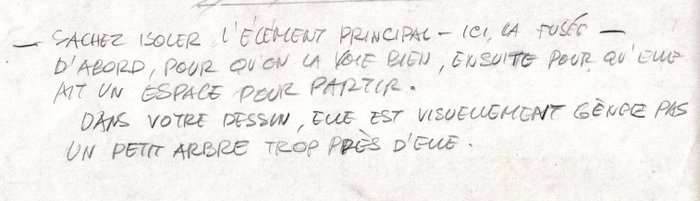 — SACHEZ ISOLER L'ÉLÉMENT PRINCIPAL - ICI, LA FUSÉE —
D'ABORD, POUR QU'ON LA VOIE BIEN, ENSUITE POUR QU'ELLE
AIT UN ESPACE POUR PARTIR.
DANS VOTRE DESSIN, ELLE EST VISUELLEMENT GÊNÉE PAS
UN PETIT ARBRE TROP PRÈS D'ELLE.